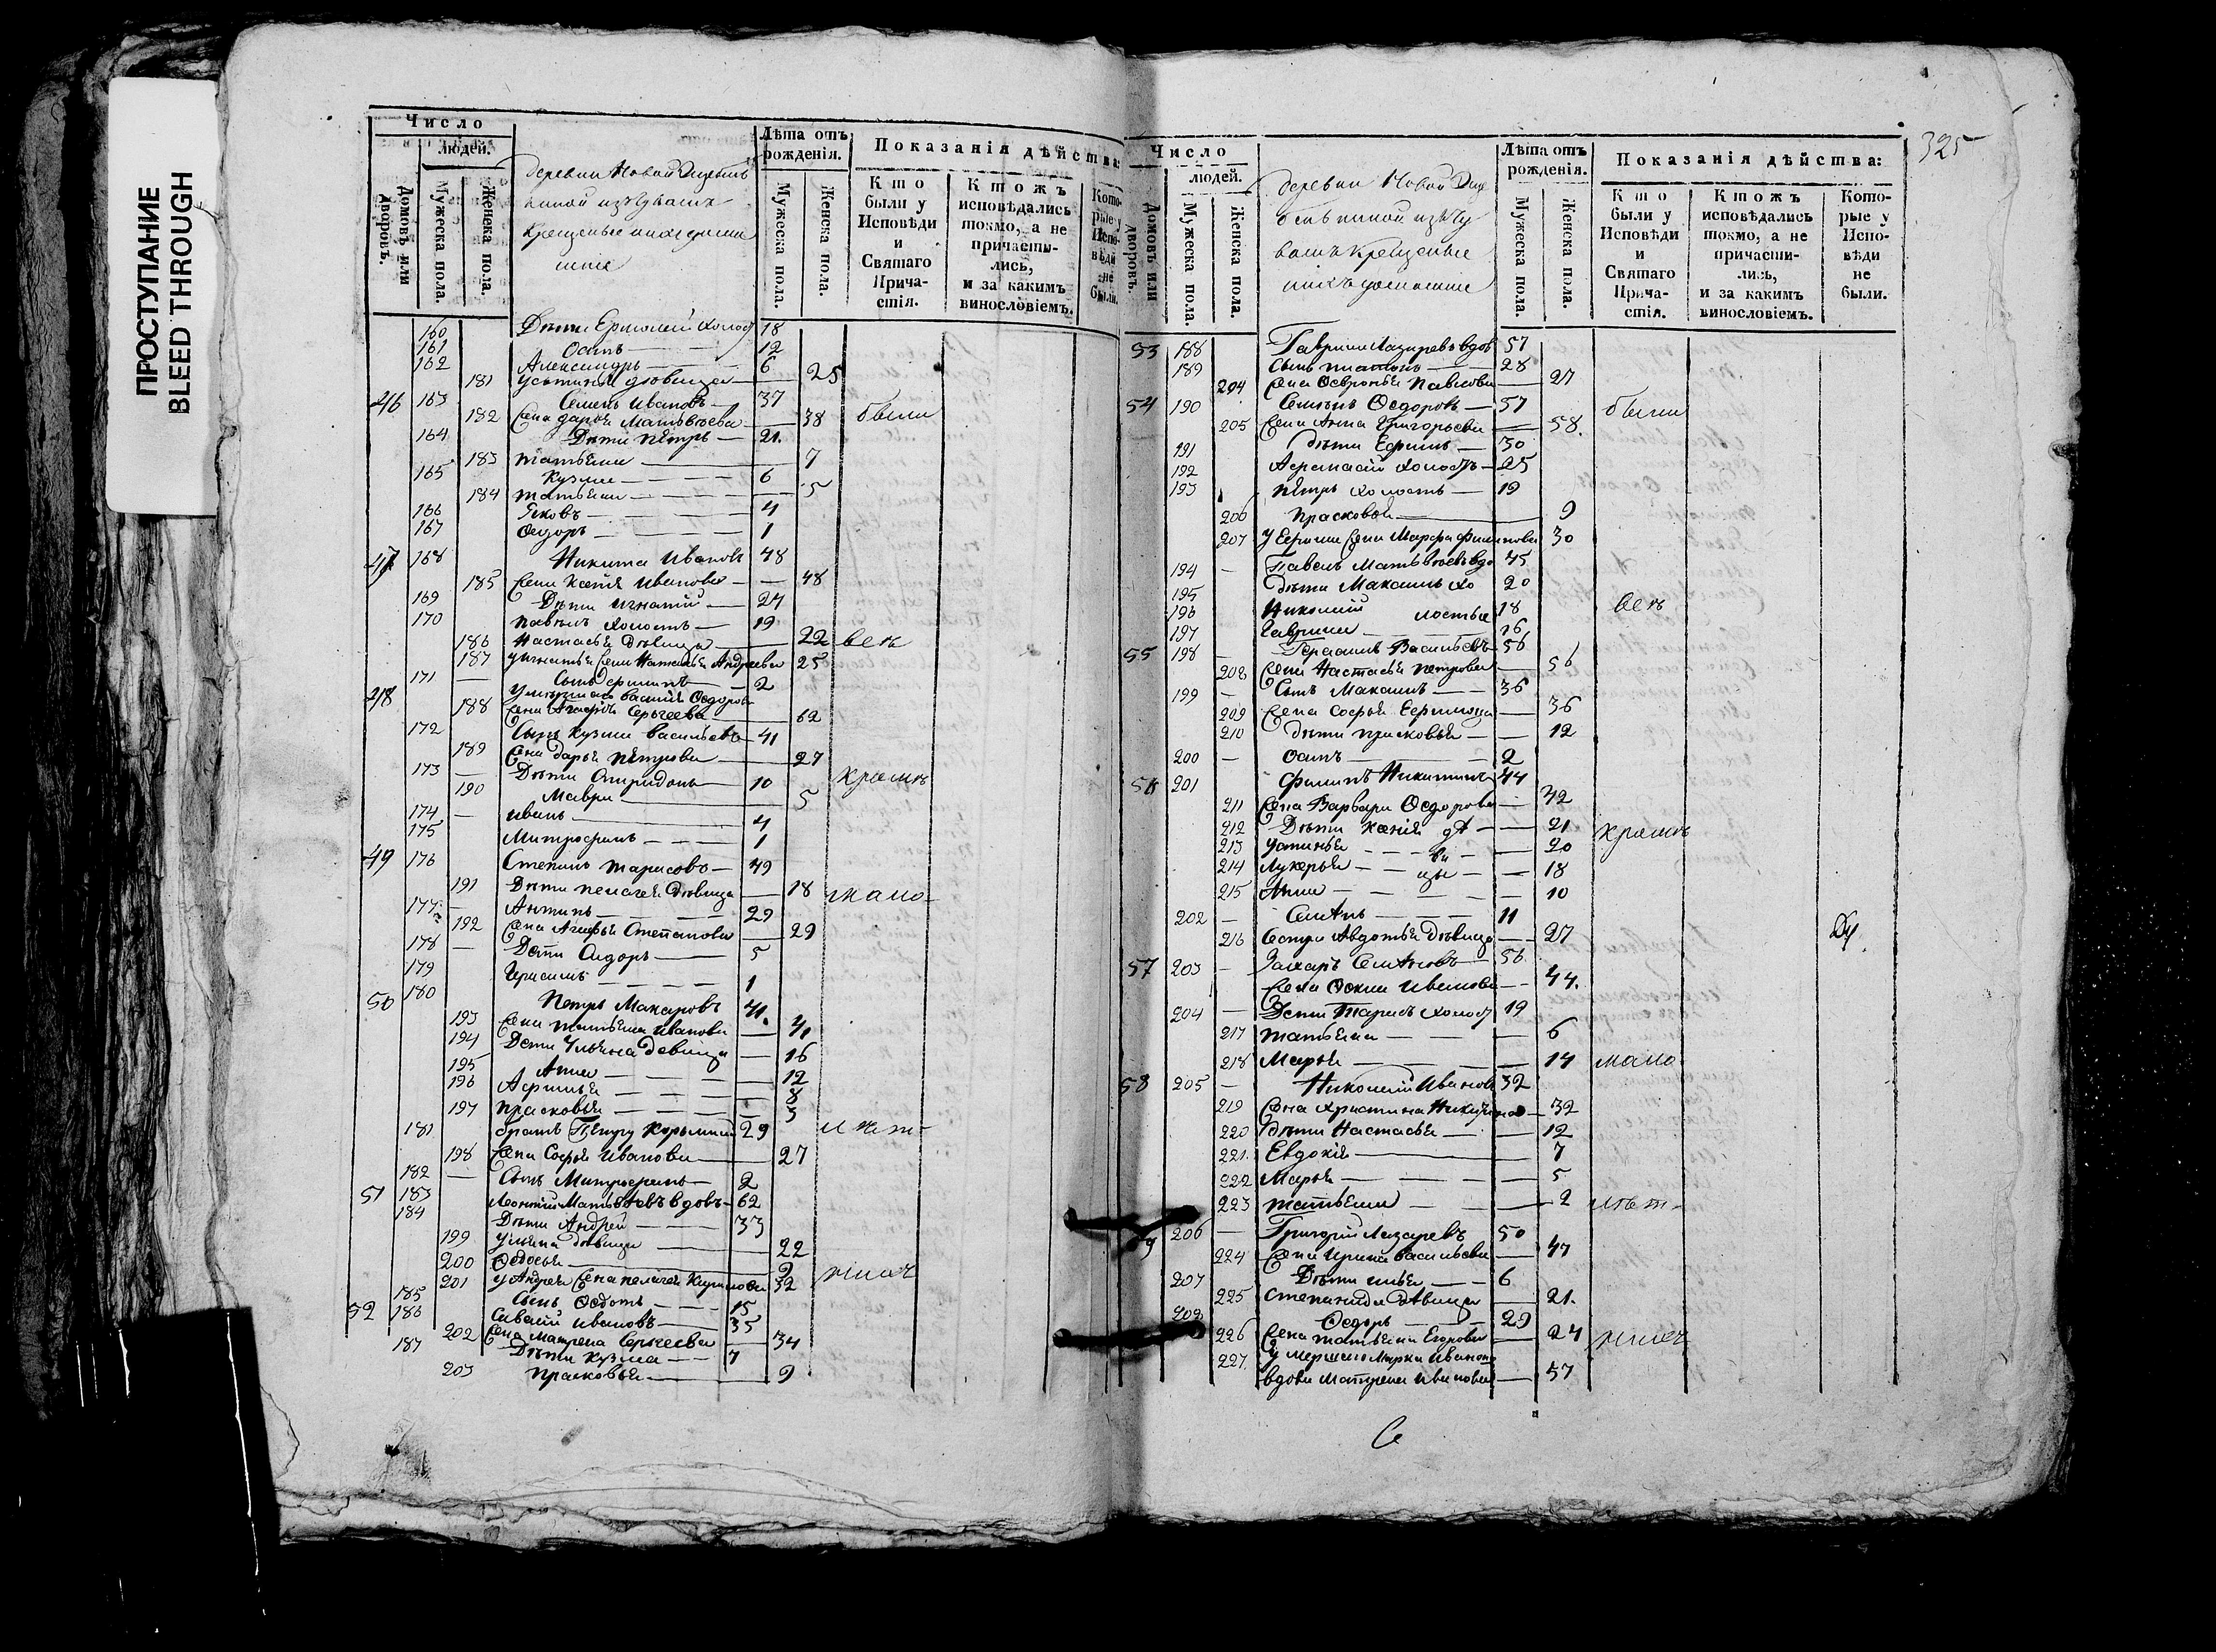 ПРОСТУПАНИЕ
BLEED THROUGH
Число
людей.
Домовъ или дворовъ.
Мужеска пола.
Женска пола.
деревни Новой
изъ чувашъ
крещеные
Лѣта отъ рожденія.
Мужеска пола.
Женска пола.
Показанія дѣйства:
Кто были у Исповѣди и Святаго Причастія.
Ктожъ исповѣдались токмо, а не причастились, и за какимъ винословіемъ.
Которые у Исповѣди не были.
160 Дѣти Ермолай холос 18
161 Осипъ 12
162 Александръ 6
181 Устинья дѣвица 25
46 163 Семенъ Ивановъ 37
182 Жена Дарья Матвѣева 38 были
164 Дѣти Петръ 21
183 Татьяна 7
165 Кузма 6
184 Татьяна 5
166 Яковъ 4
167 Ѳедоръ 1
47 168 Никита Ивановъ 48
185 Жена Ксенія Иванова 48
169 Дѣти Игнатій 24
170 Павелъ холостъ 19
186 Настасья Дѣвица 22 всѣ
187 У Игнатья жена Наталья Андреева 25
171 Сынъ 2
48 Умершаго Василія Ѳедорова
188 жена Агафья Сергеева 62
172 Сынъ Кузма Васильевъ 41
189 Жена Дарья Петрова 27
173 Дѣти Спиридонъ 10
190 Мавра 5
174 Иванъ 4
175 Митрофанъ 1
49 176 Степанъ Тарасовъ 49
191 Дѣти Пелагея Дѣвица 18 мало-
177 Антипъ 29
192 Жена Агафья Степанова 29
178 Дѣти Сидоръ 5
179 Герасимъ 1
50 180 Петръ Макаровъ 41
193 Жена Татьяна Иванова 41
194 Дети Ульяна девица 16
195 Анна 12
196 Афимья 8
197 Прасковья 5
181 братъ Петру 29 лѣт-
198 Жена Софья Иванова 27
182 Сынъ Митрофанъ 2
51 183 Леонтій Матвѣевъ вдовъ 62
184 Дѣти Андрей 33
199 Ульяна дѣвица 22
200 Ѳедосья 9
201 У Андрея жена Пелагея Кирилова 32
185 Сынъ Ѳедотъ 15
52 186 Савелій Ивановъ 35
202 Жена Матрена Сергеева 34
187 Дѣти Кузма 7
203 Прасковья 9
325
Число
людей.
Домовъ или дворовъ.
Мужеска пола.
Женска пола.
деревни Новой
Лѣта отъ рожденія.
Мужеска пола.
Женска пола.
Показанія дѣйства:
Кто были у Исповѣди и Святаго Причастія.
Ктожъ исповѣдались токмо, а не причастились, и за какимъ винословіемъ.
Которые у Исповѣди не были.
53 188 Гаврила Лазаревъ вдов 57
189 Сынъ Платонъ 28
204 Жена Ѳевронья Павлова 27
54 190 Семенъ Ѳедоровъ 57 были
205 Жена Анна Григорьева 58
191 Дѣти Ефимъ 30
192 Афанасій холостъ 25
193 Петръ холостъ 19
206 Прасковья 9
207 У Ефима жена Марфа Филипова 30
194 Павелъ Матвѣевъ вдо 45
195 Дѣти Максимъ хо 20
196 Николай лостые 18 всѣ
197 Гаврила 16
55 198 Герасимъ Васильевъ 56
208 Жена Настасья Петрова 56
199 Сынъ Максимъ 36
209 Жена Софья Ефимова 36
210 Дѣти Прасковья 12
200 Осипъ 2
56 201 Филипъ Никитинъ 44
211 Жена Варвара Ѳедорова 42
212 Дѣти Ксенія дѣ 21
213 Устинья ви 20
214 Лукерья цы 18
215 Анна 10
202 Семенъ 11
216 Сестра Авдотья Дѣвица 27
57 203 Захаръ Семеновъ 56
Жена Ѳекла Иванова 44
204 Дети Тарасъ холос 19
217 Татьяна 6
218 Марья 14 мало
58 205 Николай Ивановъ 32
219 Жена Христина Никитина 32
220 Дѣти Настасья 12
221 Евдокія 7
222 Марья 5
223 Татьяна 2 лѣт-
59 206 Григорій Лазаревъ 50
224 Жена Ирина Васильева 47
207 Дѣти Илья 6
225 Степанида дѣвица 21
208 Ѳедоръ 29
226 Жена Татьяна Егорова 24
227 Умершаго Марка Иванова
вдова Матрена Иванова 57